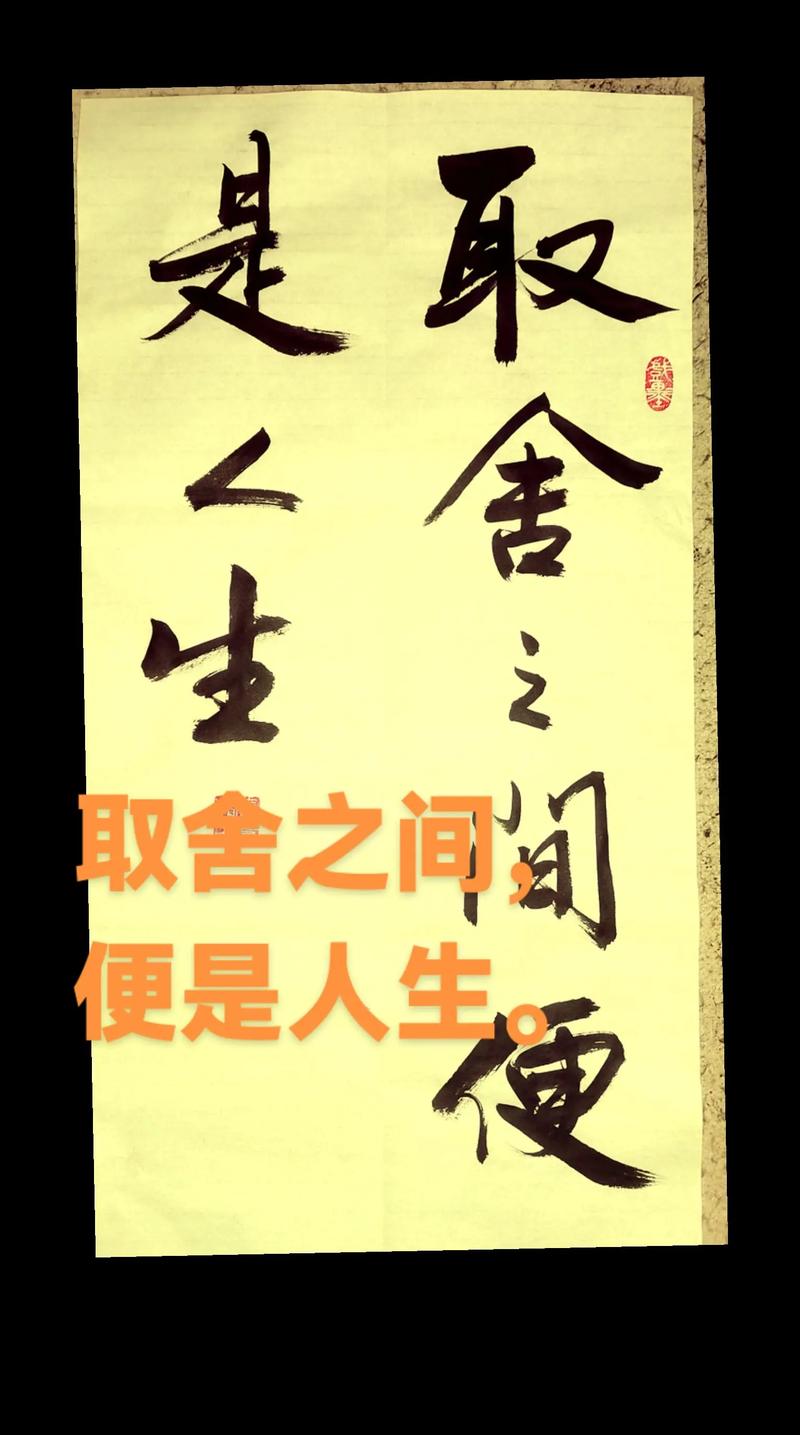 取舍之間便
是人生
取舍之间，
便是人生。